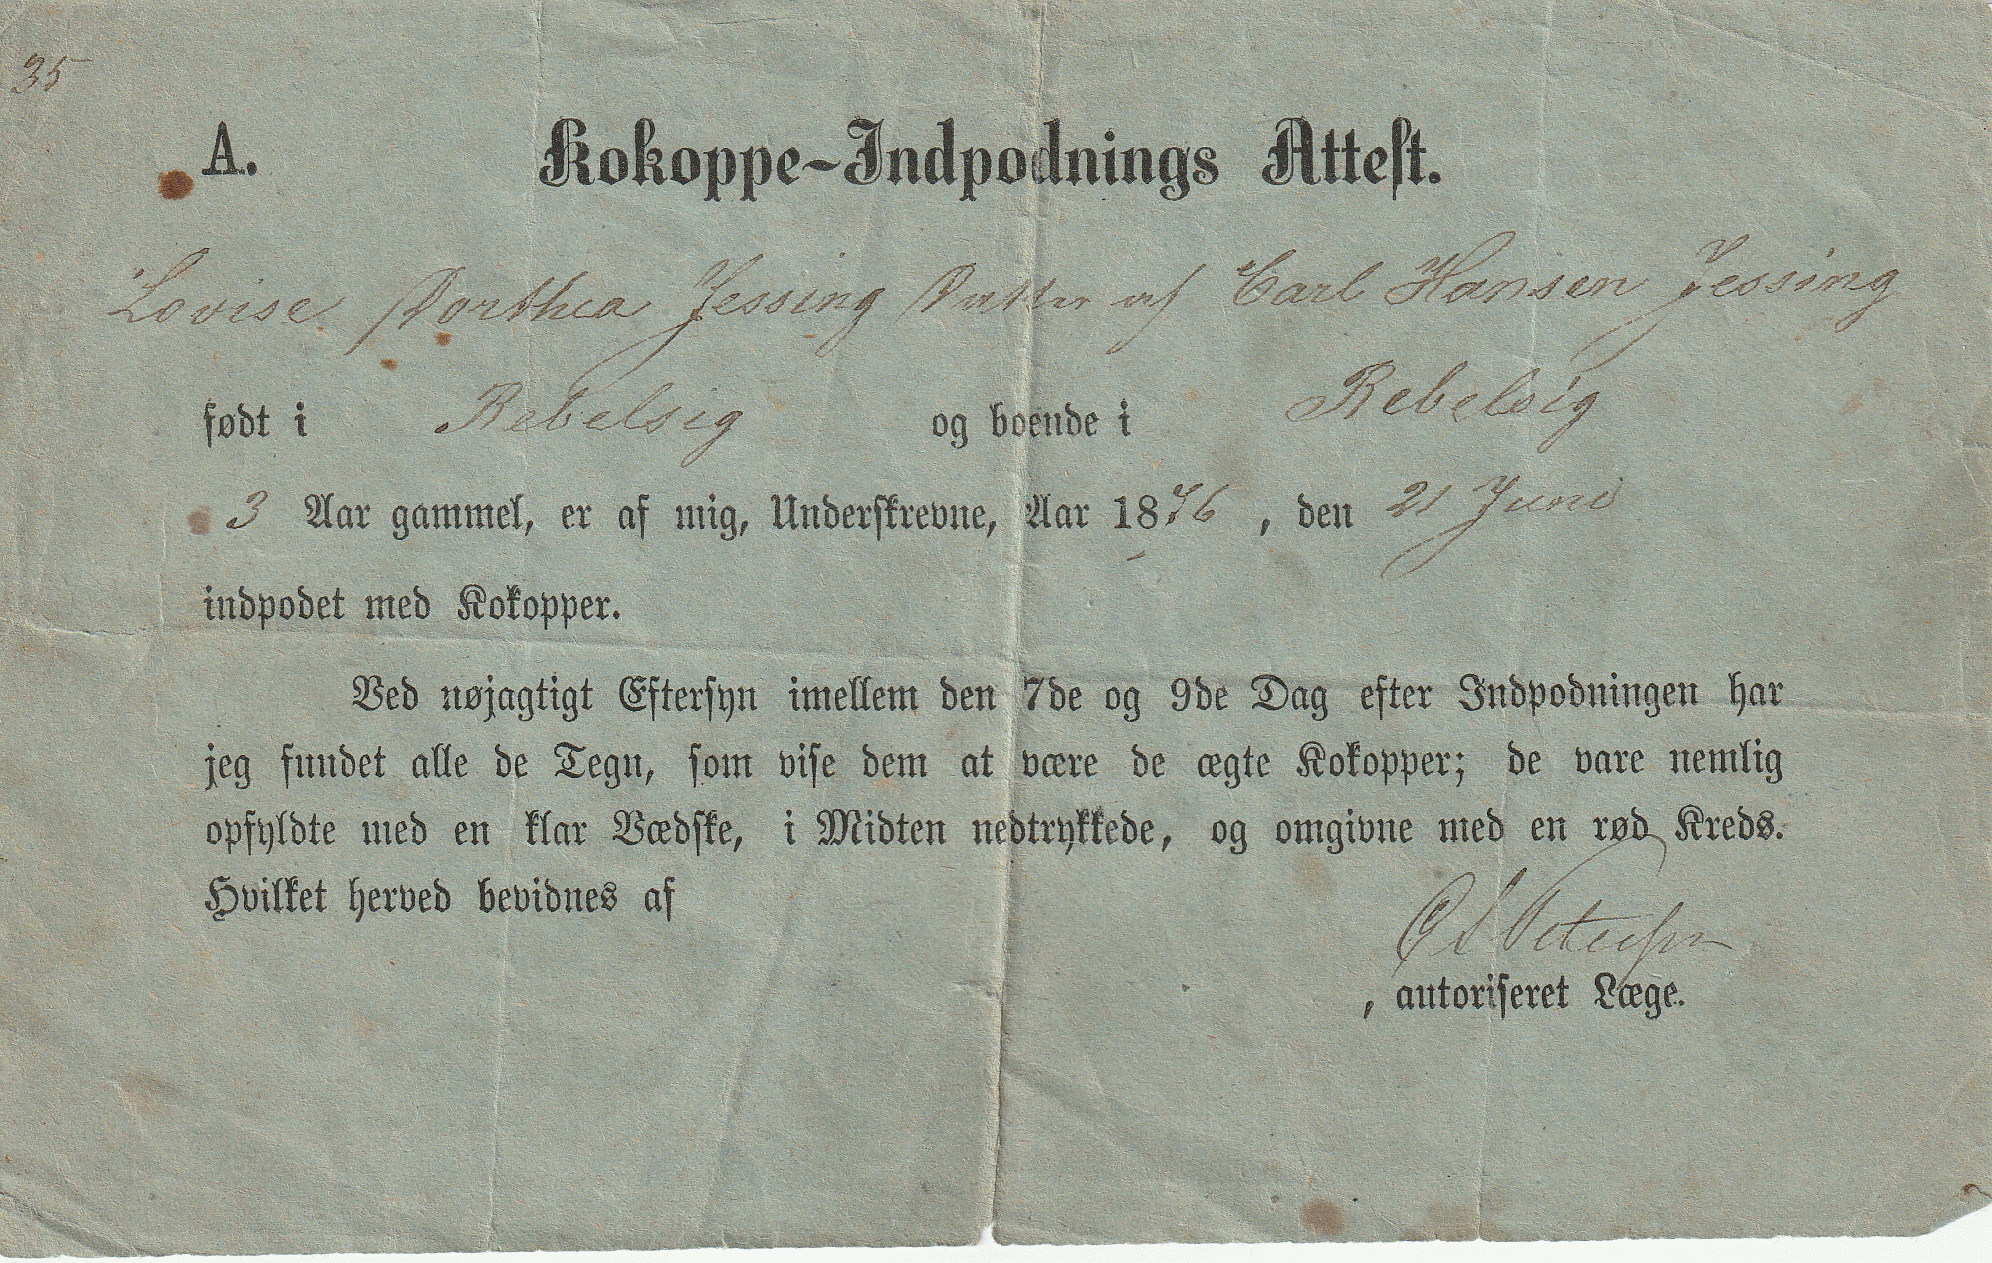 35
A. Kokoppe-Indpodnings Attest.
Lovise Dorthea Jessing Datter af Carl Hansen Jessing
født i Rebelsig og boende i Rebelsig
3 Aar gammel, er af mig, Underskrevne, Aar 1876, den 21 Juni
indpodet med Kokopper.
Ved nøjagtigt Eftersyn imellem den 7de og 9de Dag efter Indpodningen har
jeg fundet alle de Tegn, som vise dem at være de ægte Kokopper; de vare nemlig
opfyldte med en klar Vædske, i Midten nedtrykkede, og omgivne med en rød Kreds.
Hvilket herved bevidnes af
Petersen
, autoriseret Læge.